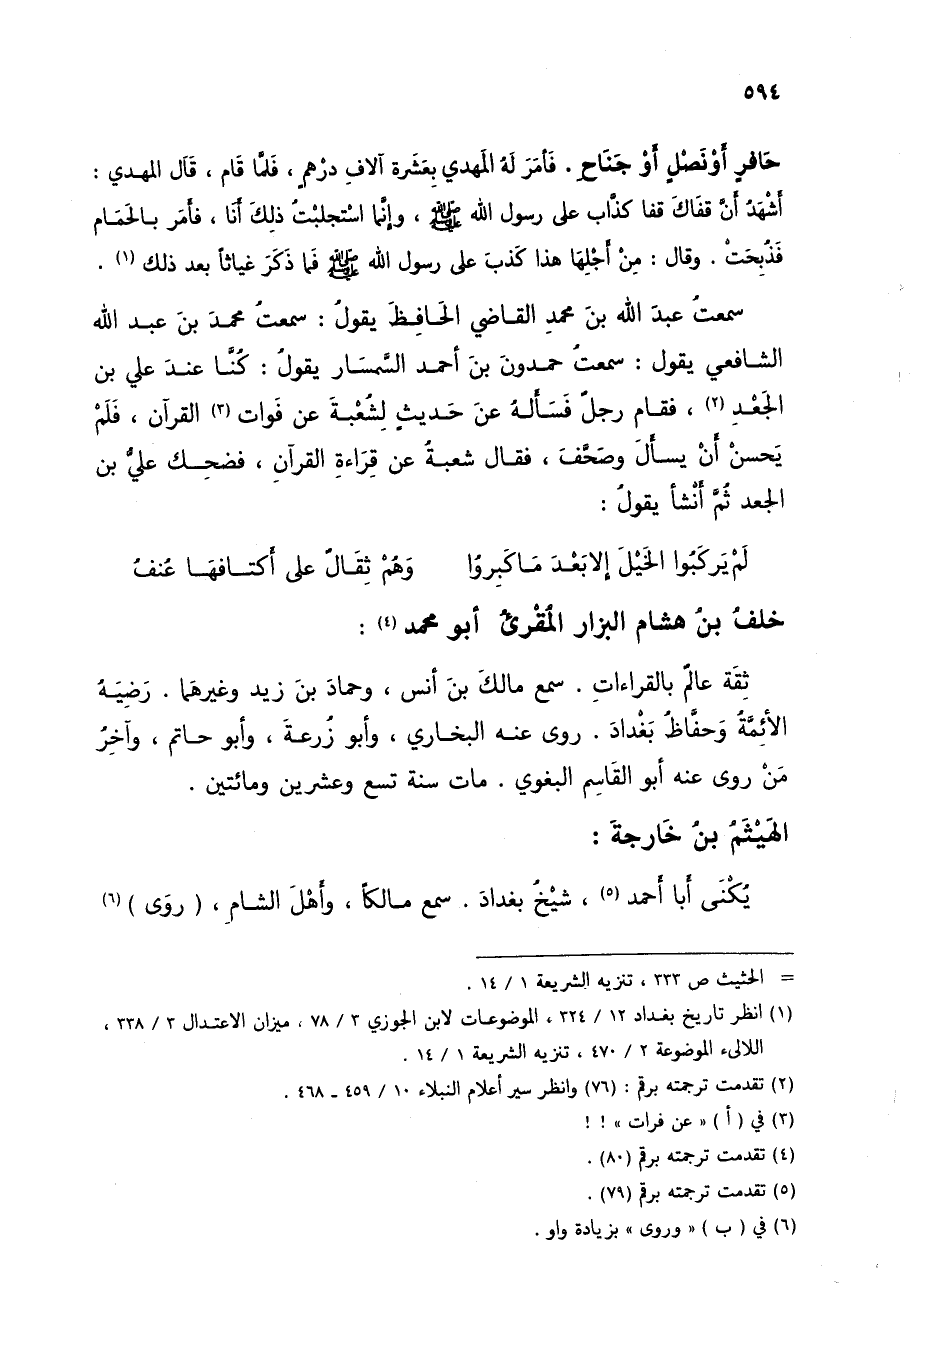 ٥٩٤
حَافرٍ أَوْ نَصْلٍ أَوْ جَنَاحٍ . فَأمَرَ لَهُ المَهدي بِعَشَرة آلافِ درْهمٍ ، فَلمَّا قَام ، قَال المهدي :
أَشْهَدُ أَنَّ قفَاكَ قفا كذَّاب على رسول الله ﷺ ، وإنَّما اسْتجلبْتُ ذلكَ أنَا ، فأمَر بالحَمَام
فَذُبِحَتْ . وقال : مِنْ أَجْلِهَا هذا كَذبَ على رسول الله ﷺ فمَا ذَكَرَ غياثاً بعد ذلك (١) .
سمعتُ عبدَ الله بنَ محمدٍ القاضي الحَافِظَ يقولُ : سمعتُ محمدَ بنَ عبد الله
الشافعي يقول : سمعتُ حمدونَ بنَ أحمد السَّمسَار يقولُ : كُنَّا عندَ علي بن
الجَعْدِ (٢) ، فقام رجلٌ فَسَألهُ عنَ حَديثٍ لشُعْبةَ عن فَوات (٣) القرآن ، فَلَمْ
يَحسنْ أَنْ يسأَلَ وصَحَّفَ ، فقال شعبةُ عن قِرَاءةِ القرآنِ ، فضحك عليُّ بن
الجعد ثُمَّ أَنْشأ يقولُ :
لَمْ يَركَبُوا الخَيْلَ إلا بَعْدَ مَا كَبِروُا وَهُمْ ثِقَالٌ على أكتافهَا عُنفُ
خلفُ بنُ هشام البزار المُقْرئُ أبو محمد (٤) :
ثِقَة عالمٌ بالقراءاتِ . سمع مالكَ بنَ أنس ، وحمادَ بنَ زيد وغيرهَما . رَضِيَهُ
الأئِمَّةُ وَحفَّاظُ بَغْدادَ . روى عنه البخاري ، وأبو زُرعةَ ، وأبو حاتم ، وآخِرُ
مَنْ روى عنه أبو القَاسِم البغوي . مات سنة تسع وعشرين ومائتين .
الهَيْثَمُ بنُ خَارجةَ :
يُكْنَى أبا أحمد (٥) ، شيْخُ بغدادَ . سمع مالكاً ، وأَهْلَ الشام ، ( روَى ) (٦)
= الحثيث ص ٣٣٣ ، تنزيه الشريعة ١ / ١٤ .
(١) انظر تاريخ بغداد ١٢ / ٣٢٤ ، الموضوعات لابن الجوزي ٣ / ٧٨ ، ميزان الاعتدال ٣ / ٣٣٨ ،
اللالىء الموضوعة ٢ / ٤٧٠ ، تنزيه الشريعة ١ / ١٤ .
(٢) تقدمت ترجمته برقم : (٧٦) وانظر سير أعلام النبلاء ١٠ / ٤٥٩ ـ ٤٦٨ .
(٣) في ( أ ) « عن فرات » ! !
(٤) تقدمت ترجمته برقم (٨٠) .
(٥) تقدمت ترجمته برقم (٧٩) .
(٦) في ( ب ) « وروى » بزيادة واو .